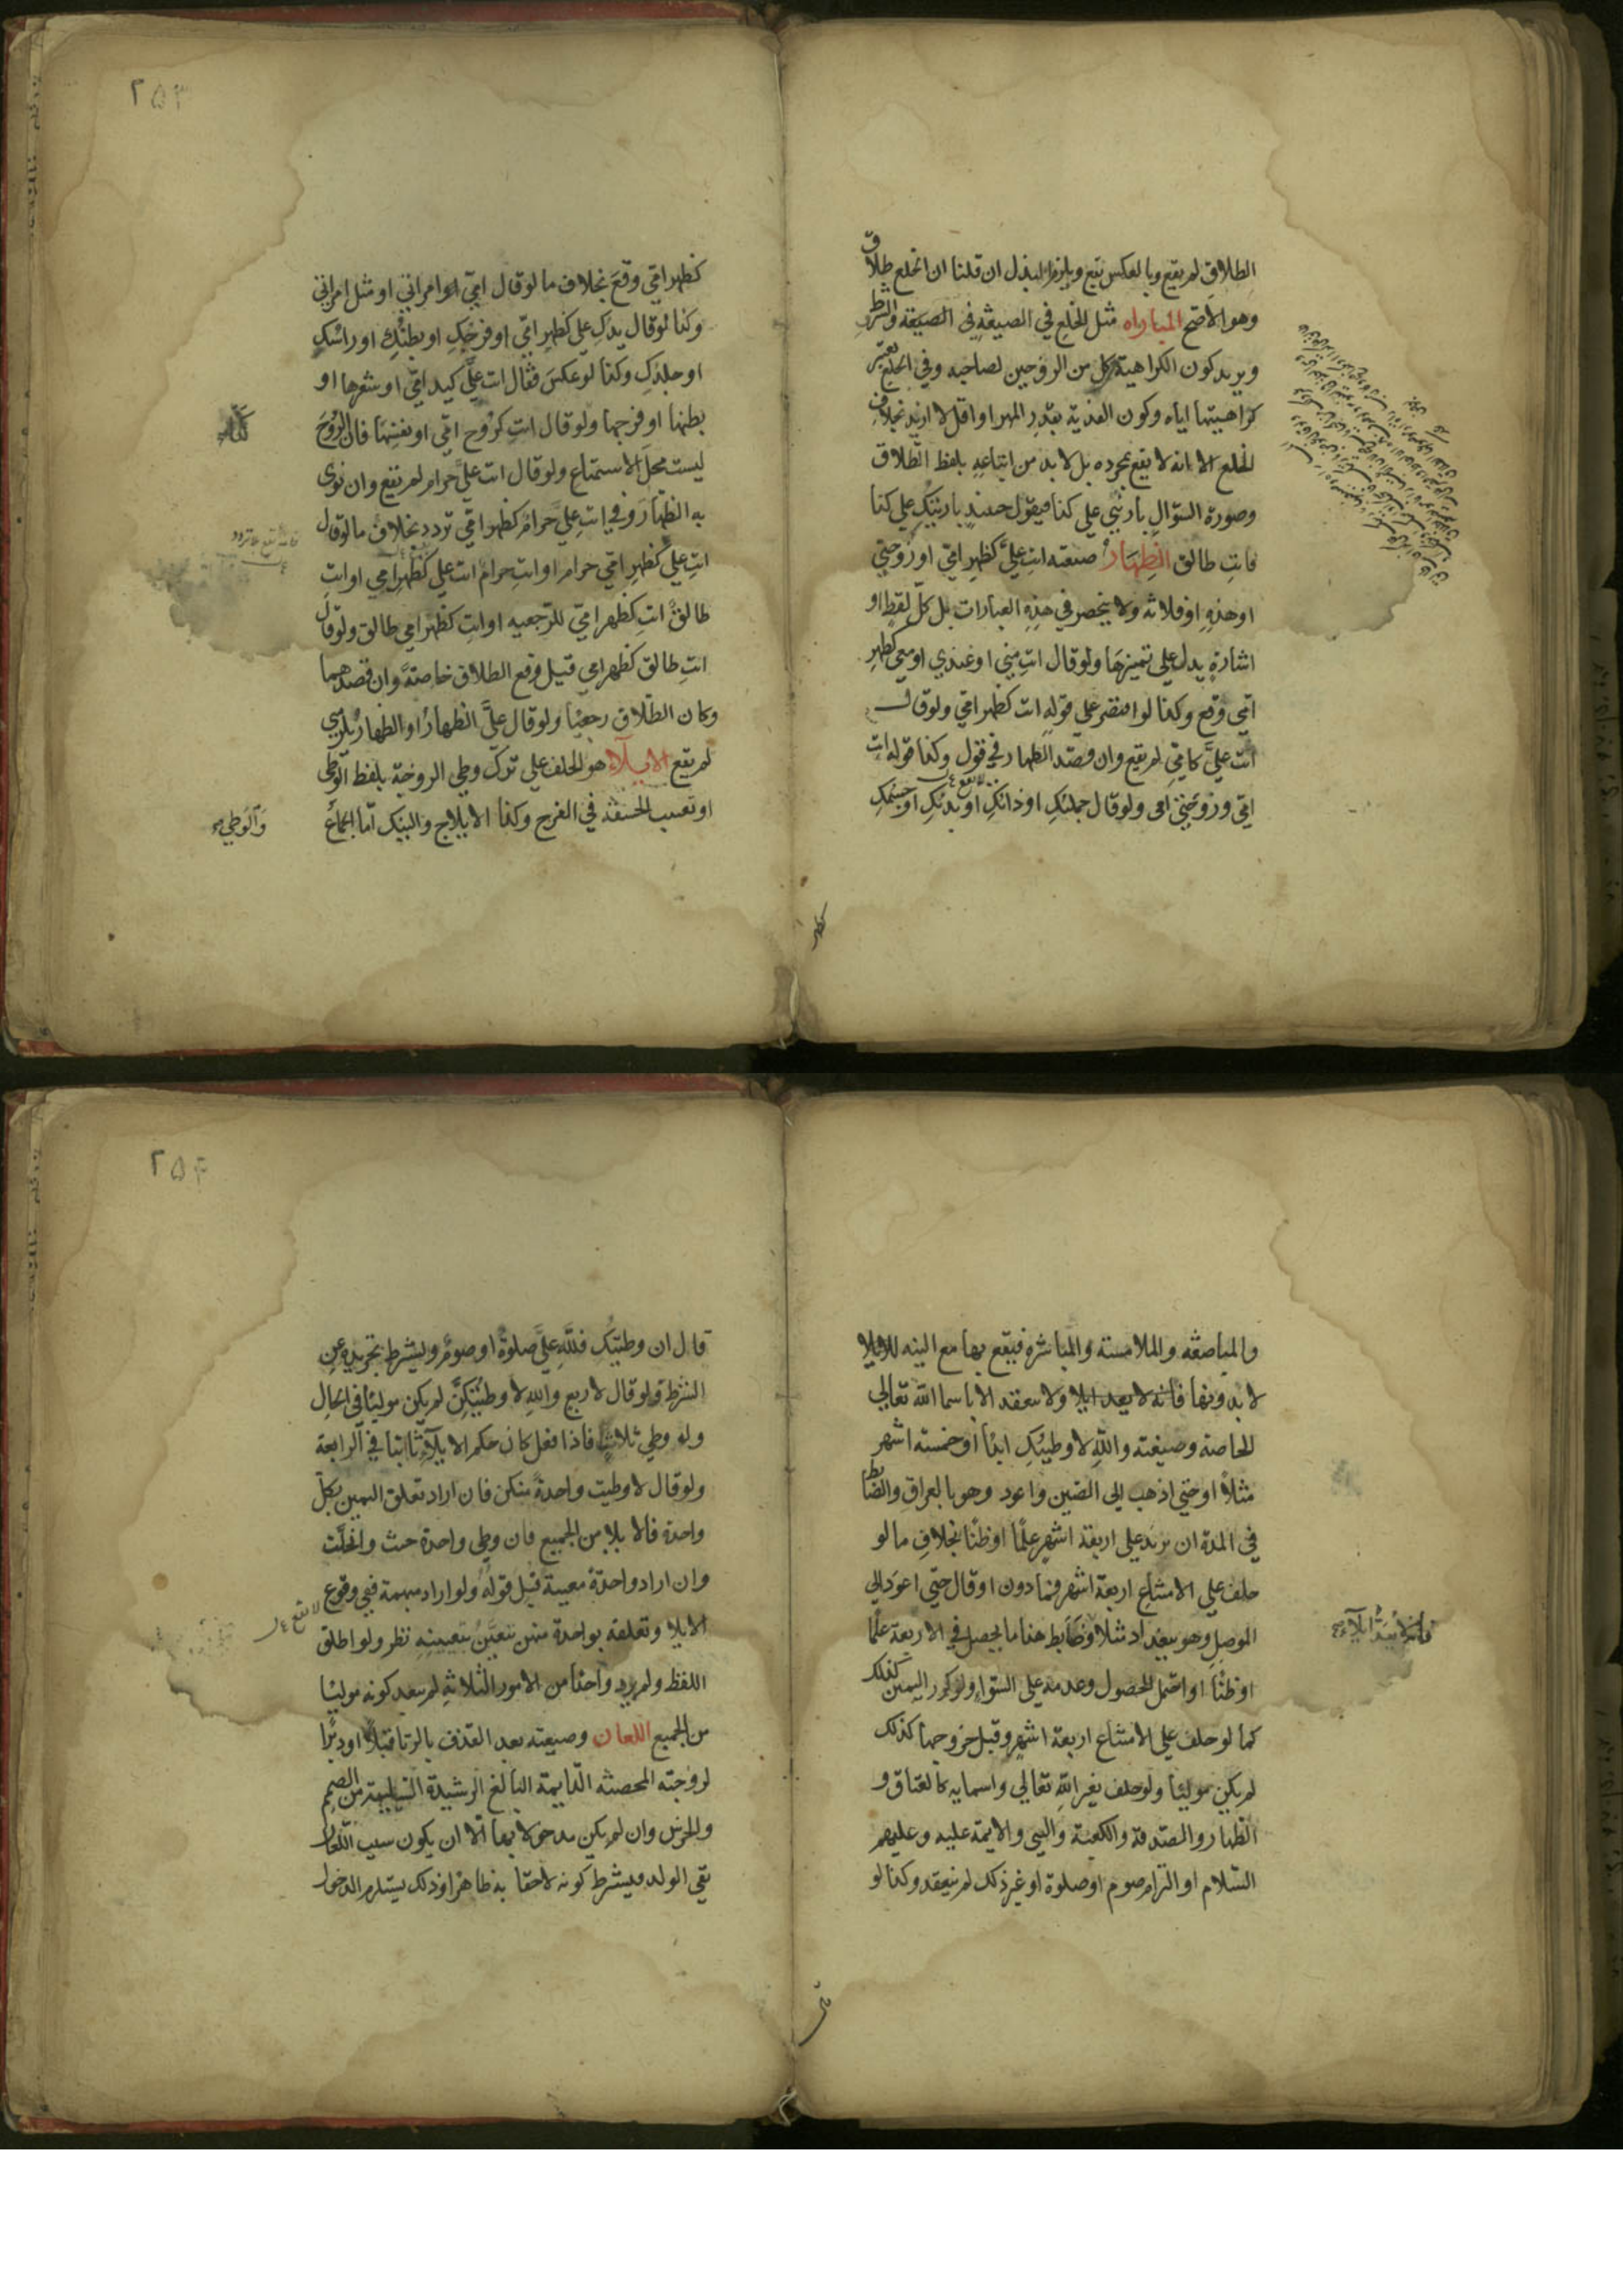 الطلاق لم يقع وبالعكس يقع ويلزم البذل ان قلنا ان الخلع طلاق
وهو الاصح المباراه مثل الخلع في الصيغة في الصيغه والشرط
ويريد كون الكراهية كل من الزوجين لصاحبه وفي الخلع يعتبر
كراهيتها اياه وكون الفدية بقدر المهر او اقل لا ازيد بخلاف
الخلع الا انه لا يقع بمجرده بل لا بد من اتباعه بلفظ الطلاق
وصورة السؤال بارئني على كذا فيقول حينئذ بارئتك على كذا
فانت طالق الظهار صيغته انت علي كظهر امي او زوجتي
او هذه او فلانه ولا ينحصر في هذه العبارات بل كل لفظ او
اشارة يدل على تميزها ولو قال انت مني او عندي او معي كظهر
امي وقع وكذا لو اقتصر على قوله انت كظهر امي ولو قال
انت علي كامي لم يقع وان قصد الظهار في قول وكذا قوله انت
امي وزوجتي امي ولو قال جملتك او ذاتك او بدنك او جسمك
٢٥٣
كظهر امي وقع بخلاف ما لو قال امي امراتي او مثل امراتي
وكذا لو قال يدك علي كظهر امي او فرجك او بطنك او راسك
او جلدك وكذا لو عكس فقال انت علي كيد امي او شعرها او
بطنها او فرجها ولو قال انت كروح امي او نفسها فان الروح
ليست محل الاستمتاع ولو قال انت علي حرام لم يقع وان نوى
به الظهار وفي انت علي حرام كظهر امي تردد بخلاف ما لو قال
انت علي كظهر امي حرام او انت حرام انت علي كظهر امي او انت
طالق انت كظهر امي للرجعيه او انت كظهر امي طالق ولو قال
انت طالق كظهر امي قيل وقع الطلاق خاصة وان قصدهما
وكان الطلاق رجعيا ولو قال علي الظهار او الظهار يلزمني
لم يقع الايلاء هو الحلف على ترك وطي الزوجة بلفظ الوطي
او تغيب الحشفة في الفرج وكذا الايلاج والنيك اما الجماع
والوطي
والمباضعه والملامسة والمباشرة فيقع بها مع النيه للايلا
لا بدونها فانه لا يعد ايلا ولا ينعقد الا باسما الله تعالى
الخاصة وصيغته والله لا وطيتك ابدا او خمسة اشهر
مثلا او حتى اذهب الى الصين واعود وهو بالعراق والضابط
في المدة ان يزيد على اربعة اشهر علما او ظنا بخلاف ما لو
حلف على الامتناع اربعة اشهر فما دون او قال حتى اعود الى
الموصل وهو ببغداد مثلا وضابط هذا ما يحصل في الاربعة علما
او ظنا او احتمل الحصول وعدمه على السواء ولو كرر اليمين كذلك
كما لو حلف على الامتناع اربعة اشهر وقبل خروجها كذلك
لم يكن موليا ولو حلف بغير الله تعالى واسمايه كالعتاق و
الظهار والصدقة والكعبة والنبي والايمة عليه وعليهم
السلام او التزام صوم او صلوة او غير ذلك لم ينعقد وكذا لو
٢٥٤
قال ان وطيتك فلله علي صلوة او صوم ويشترط تجريده عن
الشرط ولو قال لاربع والله لا وطيتكن لم يكن موليا في الحال
وله وطي ثلاث فاذا فعل كان حكم الايلاء ثابتا في الرابعة
ولو قال لا وطيت واحدة منكن فان اراد تعلق اليمين بكل
واحدة فالايلا من الجميع فان وطي واحدة حنث وانحلت
وان اراد واحدة معينة قبل قوله ولو اراد مبهمة ففي وقوع
الايلا وتعلقه بواحدة منهن يتعين بتعيينه نظر ولو اطلق
اللفظ ولم يرد واحدا من الامور الثلاثة لم يبعد كونه موليا
من الجميع اللعان وصيغته بعد القذف بالزنا قبلا او دبرا
لزوجته المحصنة الدايمة البالغ الرشيدة السليمة من الصمم
والخرس وان لم يكن مدخولا بها الا ان يكون سبب اللعان
نفي الولد فيشترط كونه لاحقا به ظاهرا وذلك يستلزم الدخول